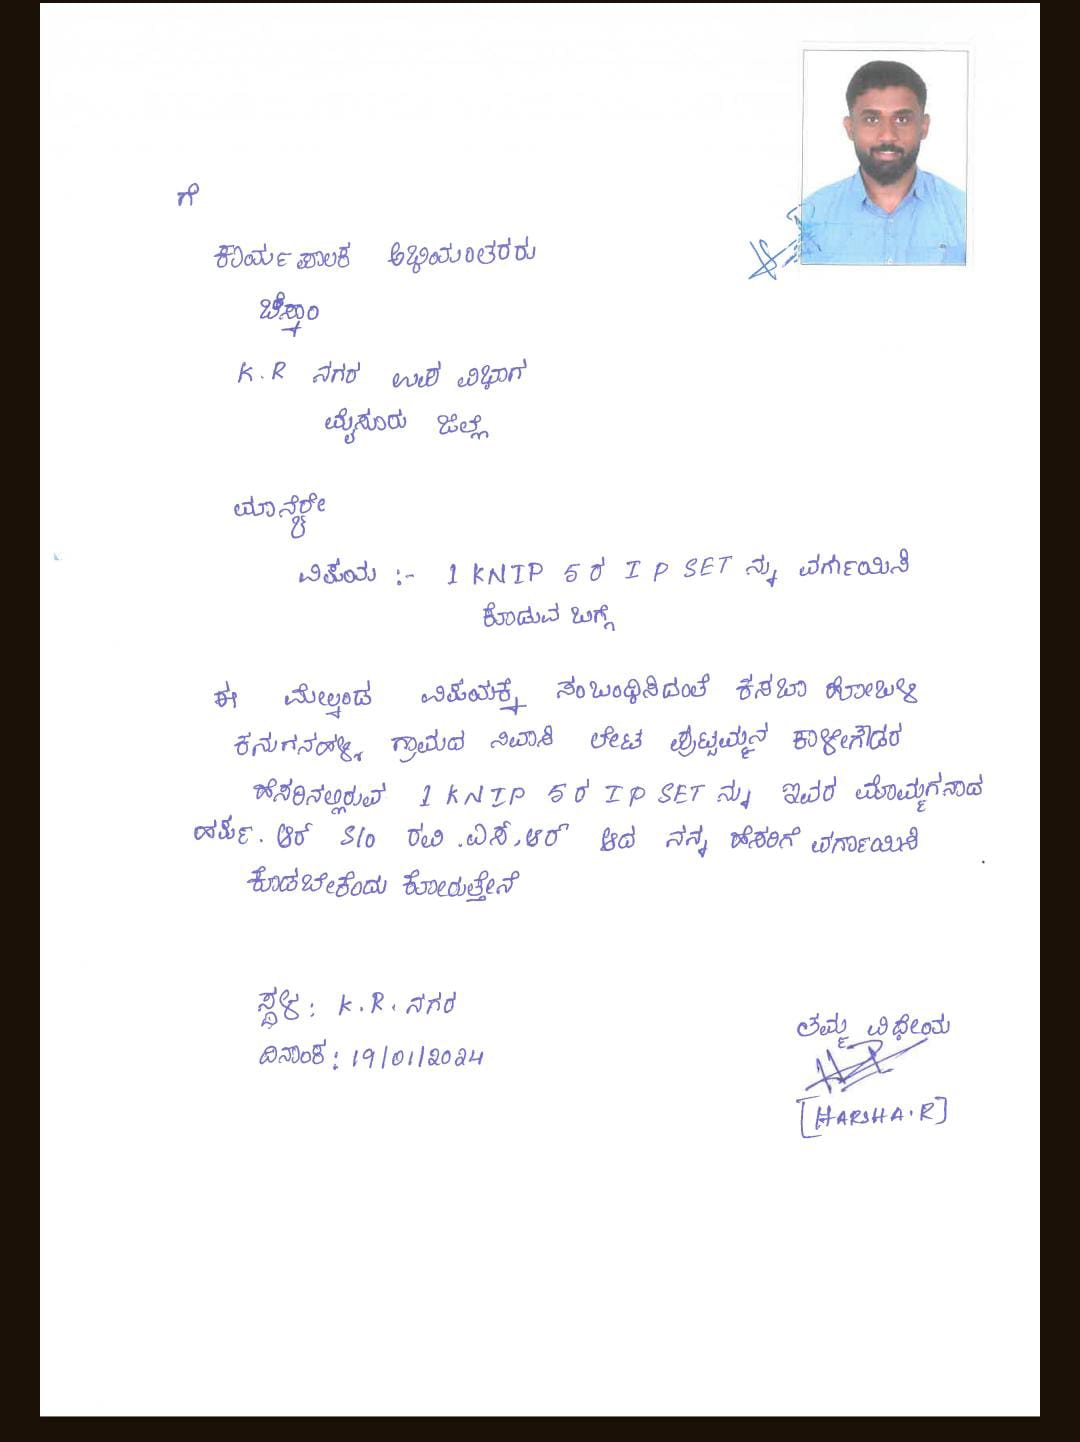 ಗೆ
ಕಾರ್ಯಪಾಲಕ ಅಭಿಯಂತರರು
ಚೆಸ್ಕಾಂ
K.R ನಗರ ಉಪ ವಿಭಾಗ
ಮೈಸೂರು ಜಿಲ್ಲೆ
ಮಾನ್ಯರೇ
ವಿಷಯ :- 1 KNIP 5 ರ I P SET ನ್ನು ವರ್ಗಾಯಿಸಿ
ಕೊಡುವ ಬಗ್ಗೆ
ಈ ಮೇಲ್ಕಂಡ ವಿಷಯಕ್ಕೆ ಸಂಬಂಧಿಸಿದಂತೆ ಕಸಬಾ ಹೋಬಳಿ
ಕನುಗನಹಳ್ಳಿ ಗ್ರಾಮದ ನಿವಾಸಿ ಲೇಟ ಪುಟ್ಟಮ್ಮನ ಕಾಳೇಗೌಡರ
ಹೆಸರಿನಲ್ಲಿರುವ 1 KNIP 5 ರ I P SET ನ್ನು ಇವರ ಮೊಮ್ಮಗನಾದ
ಹರ್ಷ. ಆರ್ S/o ರವಿ .ಎಸ್.ಆರ್ ಆದ ನನ್ನ ಹೆಸರಿಗೆ ವರ್ಗಾಯಿಸಿ
ಕೊಡಬೇಕೆಂದು ಕೋರುತ್ತೇನೆ
ಸ್ಥಳ : K.R. ನಗರ
ತಮ್ಮ ವಿಧೇಯ
ದಿನಾಂಕ : 19/01/2024
[HARSHA.R]